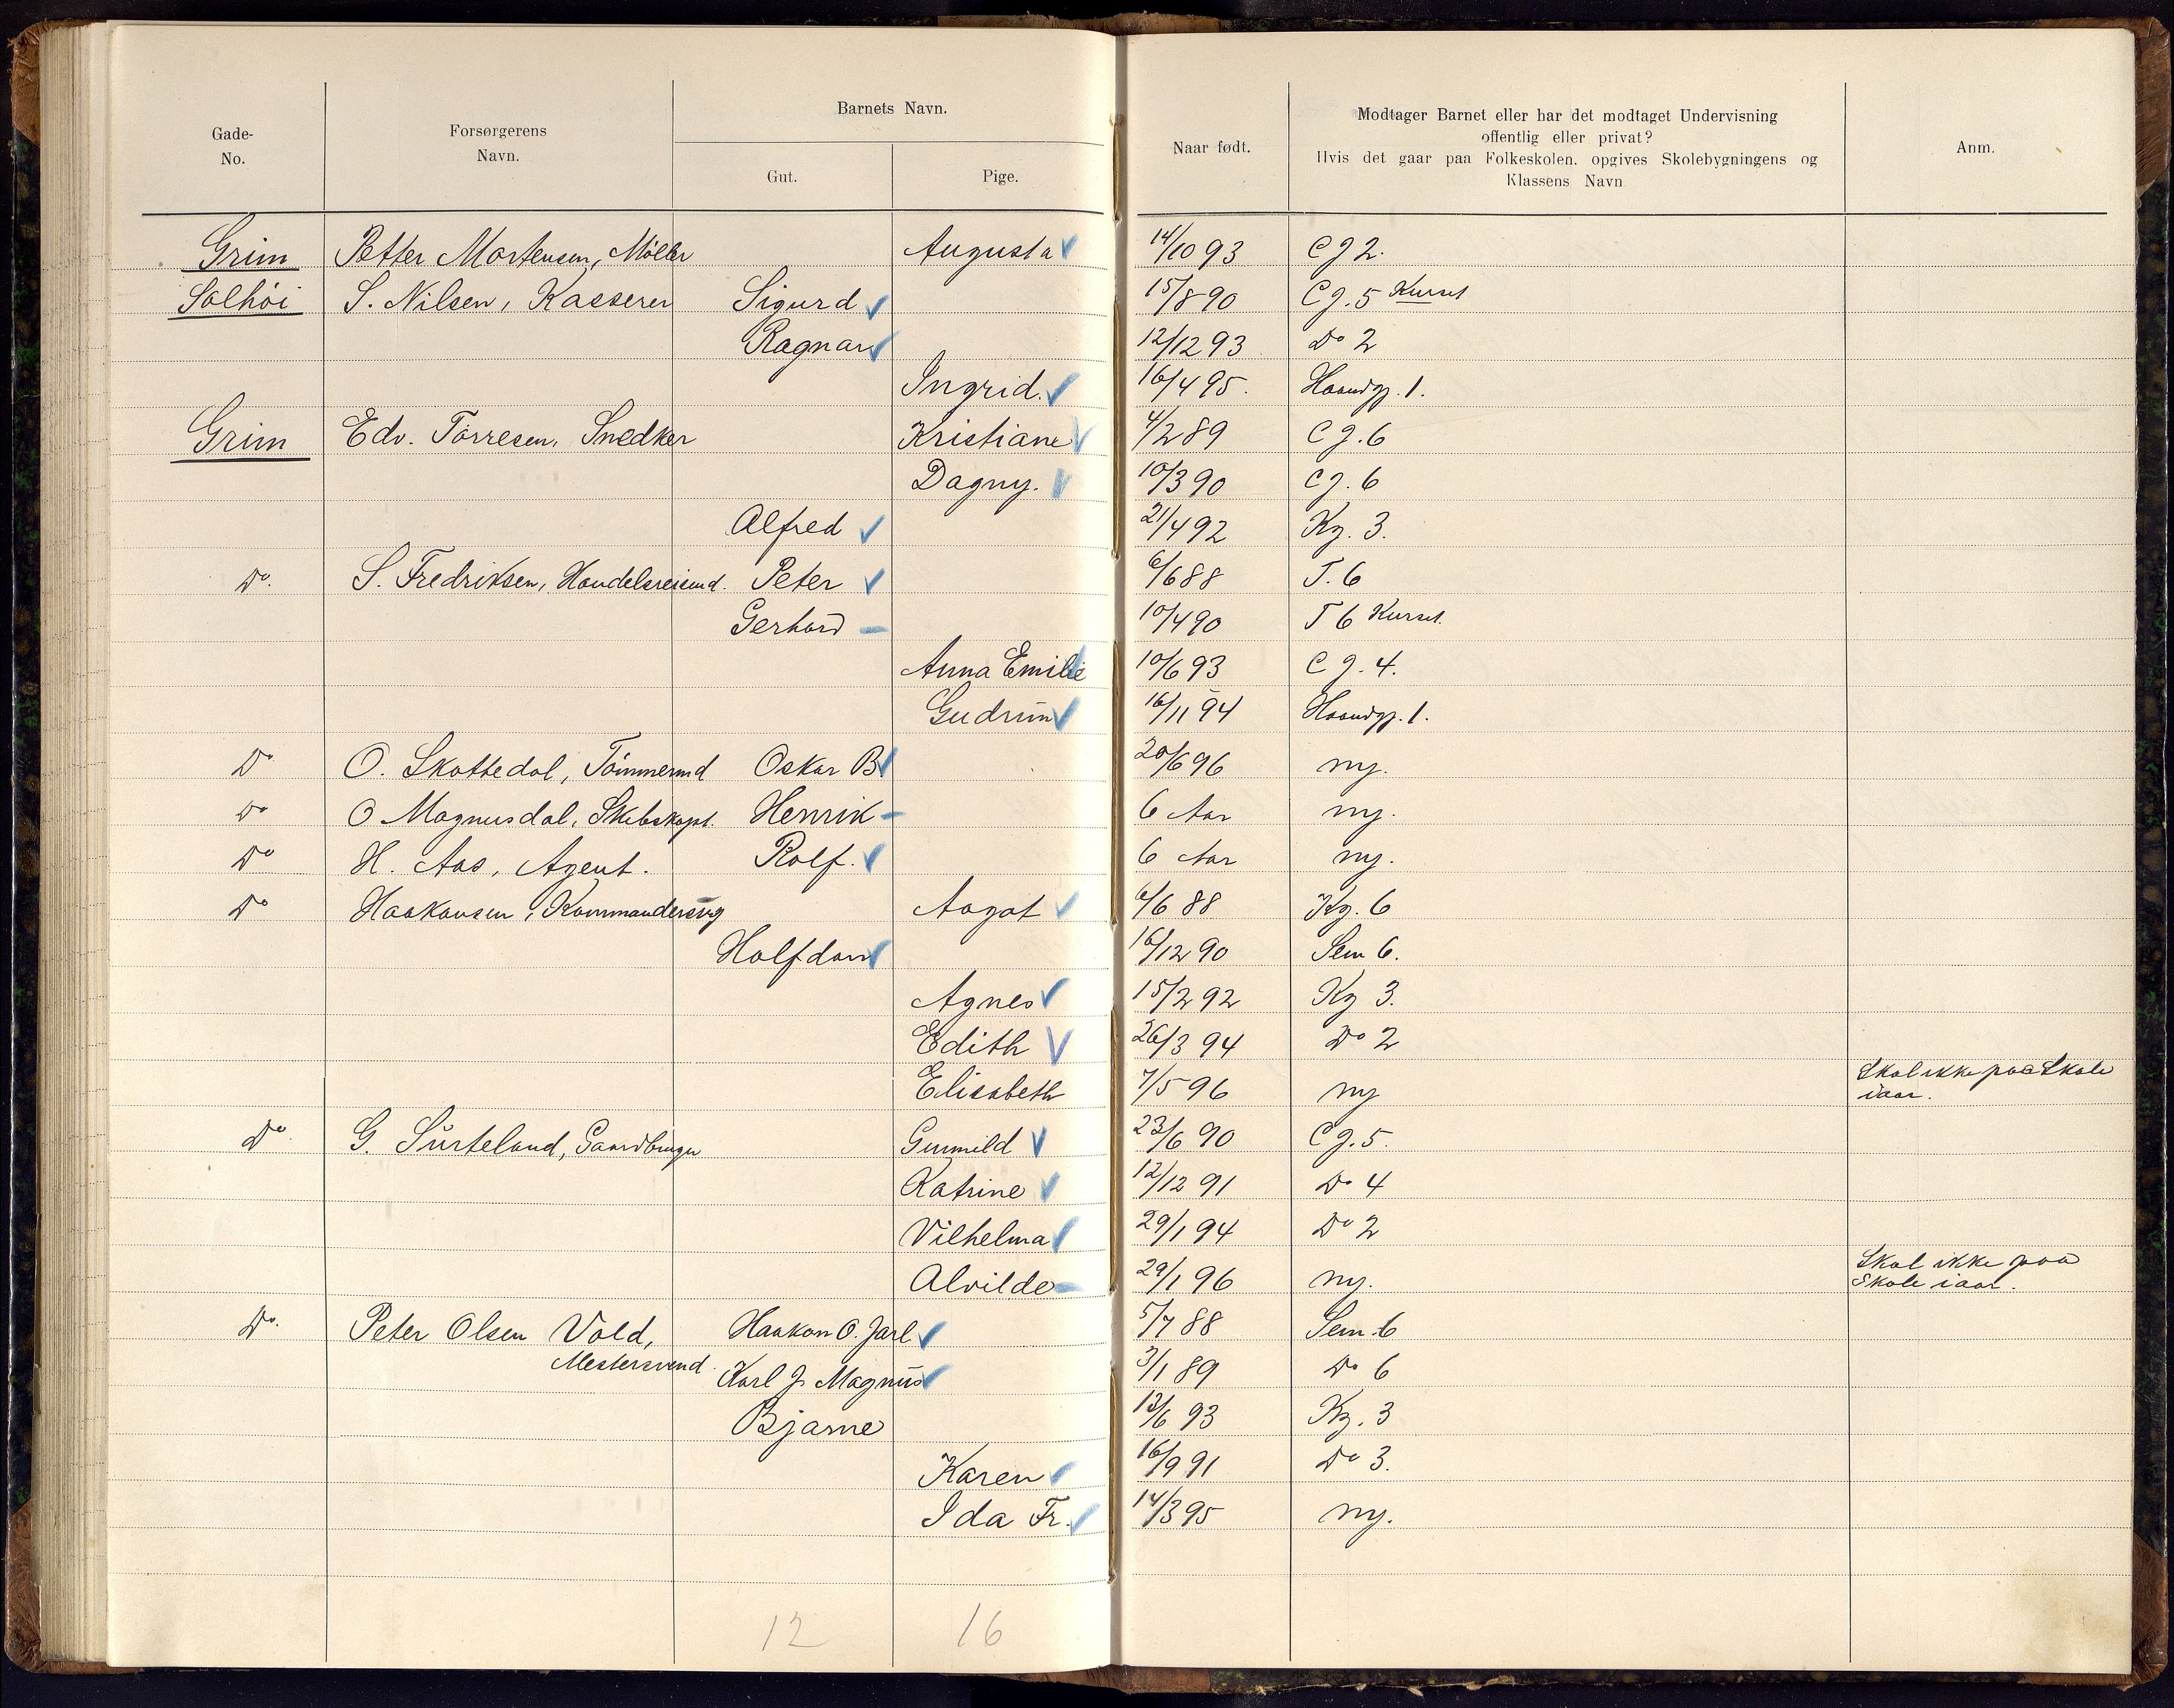 Gade-
No.
Forsørgerens
Navn.
Barnets Navn.
Gut.
Pige.
Naar født.
Modtager Barnet eller har det modtaget Undervisning
offentlig eller privat?
Hvis det gaar paa Folkeskolen, opgives Skolebygningens og
Klassens Navn
Anm.
Grim Petter Mortensen, Møller Augusta 14/10 93 Cg 2.
Solhöi S. Nilsen, Kasserer Sigurd 15/8 90 Cg. 5 Kurset
Ragnar 12/12 93 Do 2
Ingrid. 16/4 95. Haandgj. 1.
Grim Edv. Törresen, Snedker Kristiane 4/2 89 Cg. 6
Dagny. 10/3 90 Cg. 6
Alfred 21/4 92 Kg. 3.
Do. S. Fredriksen, Handelsreisend. Peter 6/6 88 T. 6
Gerhard 10/4 90 T 6 Kurset.
Anna Emilie 10/6 93 Cg. 4.
Gudrun 16/11 94 Haandgj. 1.
Do O. Skottedal, Tömmermd Oskar B 20/6 96 ny.
Do O Magnusdal, Skibskapt. Henrik 6 Aar ny.
Do H. Aas, Agent. Rolf. 6 Aar ny.
Do Haakonsen, Aagot 6/6 88 Kg. 6
Halfdan 16/12 90 Sem 6.
Agnes 15/2 92 Kg 3.
Edith 26/3 94 Do 2
Elisabeth 7/5 96 ny Skal ikke paa Skole
iaar.
Do. G. Surteland, Gaardbruger Gunnild 23/6 90 Cg. 5.
Katrine 12/12 91 Do 4
Vilhelma 29/1 94 Do 2
Alvilde 29/1 96 ny. Skal ikke paa
Skole iaar.
Do. Peter Olsen Vold, Haakon O. Jarl 5/7 88 Sem. 6
Mestersvend. Karl J. Magnus 3/1 89 Do 6
Bjarne 13/6 93 Kg. 3
Karen 16/9 91 Do 3.
Ida Fr. 14/3 95 ny.
12 16